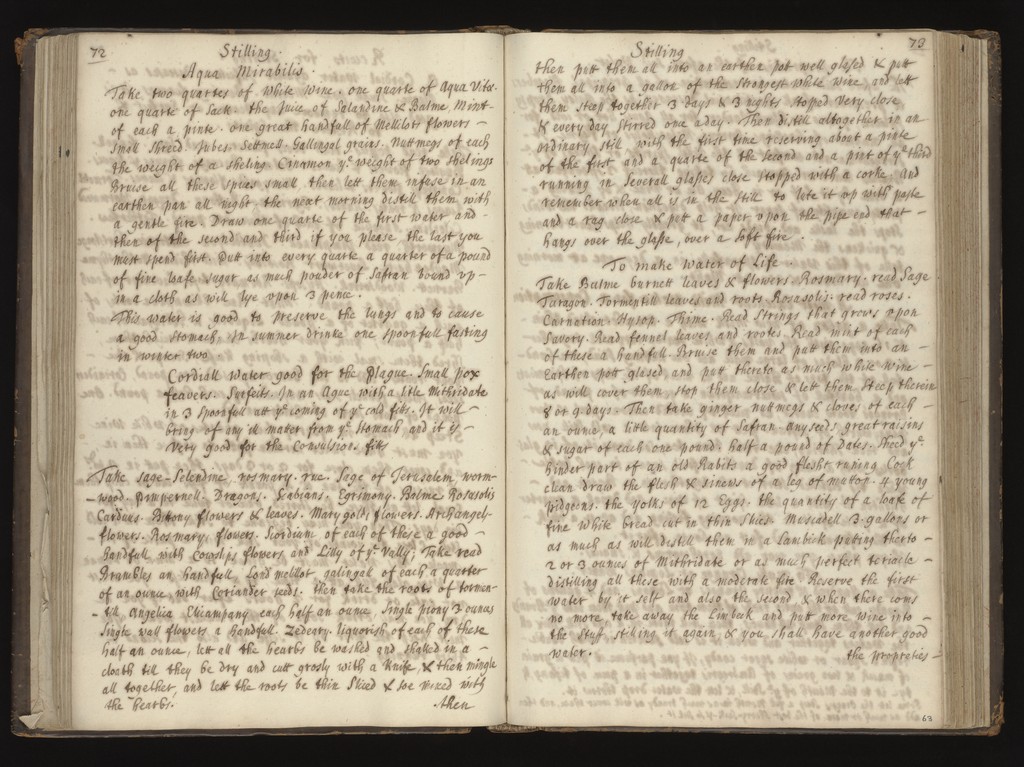 72
Stilling.
Aqua Mirabilis.
Take two quartes of white wine. one quarte of Aqua Vitæ.
one quarte of Sack. the Juice of Salandine & Balme Mint -
of each a pinte. one great handfull of Mellilots flowers -
small shreed. Cubes. Settmell Gallingal graines. Nuttmegs of each
the weight of a sheling. Cinamon ye weight of two shelings
Bruise all these spices small then lett them infuse in an
earthen pan all night. the next morning distill them with
a gentle fire. Draw one quarte of the first water and -
then of the second and third if you please the last you
must spend first. Putt into every quarte a quarter of a pound
of fine loafe sugar as much pouder of Safran bound up -
in a cloth as will lye upon 3 pence.
This water is good to preserve the lungs and to cause
a good stomach. In summer drinke one spoonfull fasting
in winter two.
Cordiall water good for the Plague. Small pox
feavers. Surfeits. In an Ague with a litle Mithridate
in 3 spoonfull att ye coming of ye cold fitts. It will -
bring of any ill matter from ye stomach and it is -
Very good for the Convulsion. fitts
Take sage - Selendine. rosmary. rue. Sage of Jerusalem. worm-
-wood. Pimpernell. Dragons. Scabians. Egrimony. Balme Rosusolis
Carduus. Bitony flowers & leaves. Marygolds flowers. Archangell-
flowers. Rosmary flowers. Scordium of each of these a good -
handfull with Cowslips flowers, and Lilly of ye Vally; Take read
Brambles an handfull. Lond melilot galingall of each a quarter
of an ounce with Coriander seeds. then take the roots of tormen-
-till. Angelica Eliampany each half an ounce. Single piony 3 ounces
single wall flowers a handfull. Zedeary. liquorish of each of these
half an ounce, lett all the hearbs be washed and shaked in a -
cloath till they be dry and cutt grosly with a knife, & then mingle
all together, and lett the roots be thin sliced & soe mixed with
the hearbs.
then
73
Stilling
then putt them all into an earthen pot well glased & putt
them all into a gallon of the strongest white wine and lett
them steep together 3 days & 3 nights stoped very close
& every day stirred once a day. Then distill altogether in an
ordinary still with the first time reserving about a pinte
of the first and a quarte of the second and a pint of ye third
running in severall glasses close stopped with a corke. and
remember when all is in the still to lute it up with paste
and a rag close & putt a paper upon the pipe end that -
hangs over the glasse, over a soft fire.
To make Water of Life.
Take Balme burnett leaves & flowers. Rosmary. read Sage
Taragon. Tormentill leaves and roots. Rosasolis. read roses.
Carnation. Hysop. Thime. Read Strings that grows upon
Savory. Read fennel leaves and rootes. Read mint of each
of these a handfull. Bruise them and putt them into an -
Earthen pott glesed and putt thereto as much white wine -
as will cover them stop them close & lett them steep therein
8 or 9 days. Then take ginger nuttmegs & cloves of each -
an ounce, a little quantity of Safran. Anyseeds great raisins
& sugar of each one pound. half a pound of Dates. Steed ye
hinder part of an old Rabits a good fleshe runing Cock
clean draw the flesh & sinews of a leg of mutton. 4 young
pidgeons. the yolks of 12 Eggs. the quantity of a loafe of
fine white bread cut in thin slices. Muscadell 3 gallons or
as much as will distill them in a Lambick puting therto -
2 or 3 ounces of Mithridate or as much perfect teriacle -
distilling all these with a moderate fire Reserve the first
water by it self and also the second & when there coms
no more take away the Limbeck and putt more wine into -
the stuff stiling it again, & you shall have another good
water.
the propreties -
63